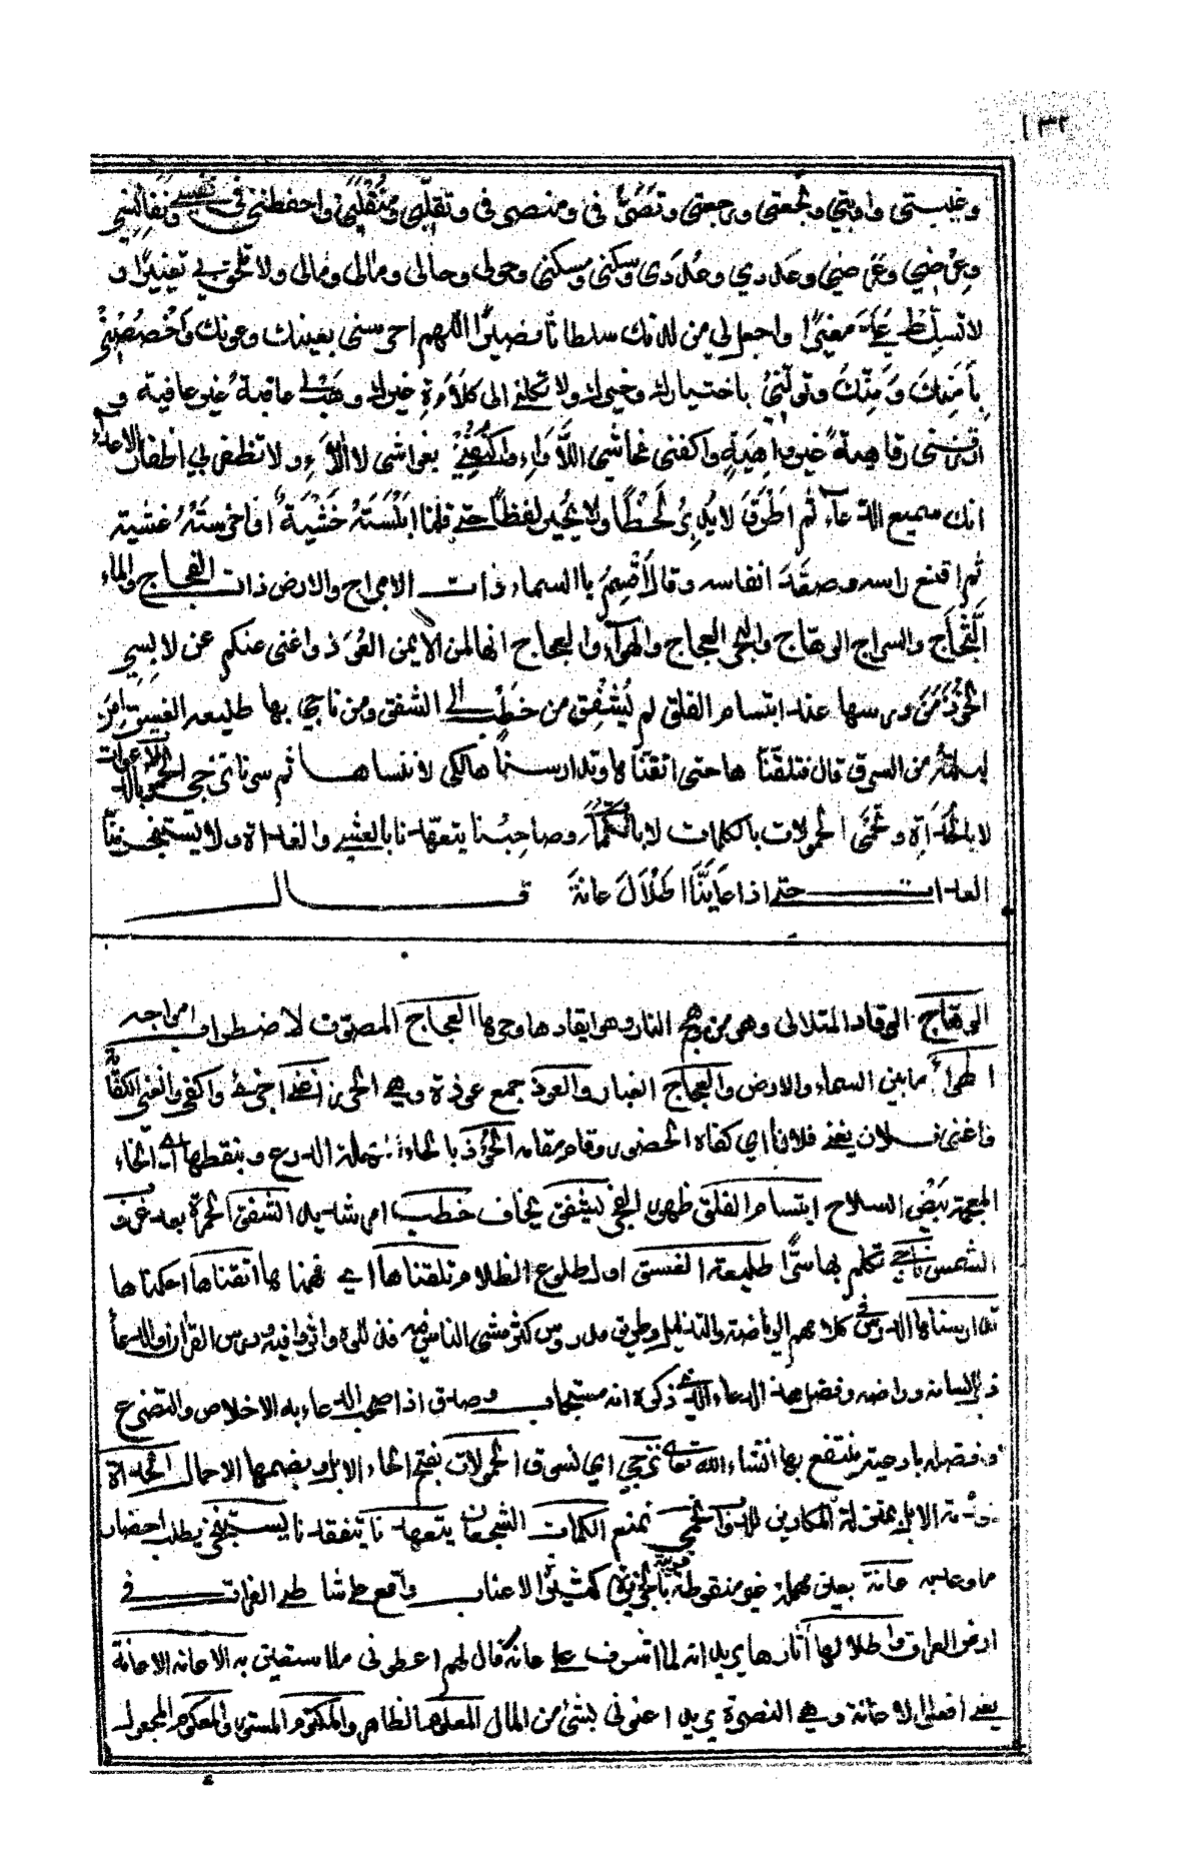 ١٣٢
وغيبتي واوبتي ونجعتي ورجعتي وتصرفي ومنصرفي وتقلبي ومنقلبي واحفظني في نفسي ونفائسي
وعرضي وعرضي وعددي وعُددي وسكني ومسكني وحولي وحالي ومالي ومالي ولا تلحق بي تغييرا و
لا تسلط علي مغيرا واجعل لي من لدنك سلطانا نصيرا اللهم احرسني بعينك وعونك واخصصني
بامنك ومنك وتولني باختيارك وخيرك ولا تكلني الى كلاءة غيرك وهب لي عافية غير عافية و
ارزقني رفاهية غير واهية واكفني مخاشي اللاواء واكنفني بغواشي الالاء ولا تظفر بي اظفار الاعداء
انك سميع الدعاء ثم اطرق لا يدير لحظا ولا يحير لفظا حتى قلنا ابلسته خشية او اخرسته غشية
ثم اقنع راسه وصعد انفاسه وقال اقسم بالسماء ذات الابراج والارض ذات الفجاج والماء
الثجاج والسراج الوهاج والبحر العجاج والهواء والعجاج انها لمن الايمن العوذ واغنى عنكم من لابسي
الخوذ من درسها عند ابتسام الفلق لم يشفق من خطب الى الشفق ومن ناجى بها طليعة الغسق امن
ليلته من السرق قال فتلقناها حتى اتقناها وتدارسناها لكي لا ننساها ثم سرنا نزجي الحمولات بالدعوات
لا بالحداة ونحمي الحمولات بالكلمات لا بالكماة وصاحبنا يتعهدنا بالعشي والغداة ولا يستنجز منا
العدات حتى اذا عاينا اطلال عانة قال
الوهاج الوقاد المتلالي وهو من وهج النار وهو ايقادها وحرها العجاج المصوت لاضطراب امواجه
الهواء ما بين السماء والارض والعجاج الغبار والعوذ جمع عوذة وهي الحرز اغنى اجزى واكفى والغنى الكفاية
واغنى فلان يغني فلانا اي كفاه الحضور وقام مقامه الخوذ بالحاء المهملة الدرع وبنقطها اي الخاء
المعجمة بيض السلاح ابتسام الفلق ظهور الفجر ليشفق يخاف خطب امر شديد الشفق الحمرة بعد غروب
الشمس ناجى تكلم بها سرا طليعة الغسق اول طلوع الظلام تلقناها اي فهمناها اتقناها احكمناها
تدارسناها الدرس في كلامهم الرياضة والتذليل وطريق مدروس كثر مشي الناس فيه فذللوه واثروا فيه ودرس القران والدعا
ذلل لسانه وراضه وفضل هذا الدعاء الذي ذكره انه مستجاب وصدق اذا صحب الدعاء به الاخلاص والتضرع
وفصله بادعية ينتفع بها انشاء الله تعالى نزجي اي نسوق الحمولات بفتح الحاء الابل وبضمها الاحمال الحداة
خدمة الابل بمنزلة المكارين للدواب نحمي نمنع الكمات الشجعان يتعهدنا يتفقدنا يستنجز يطلب احضار
ما وعد به عانة بعين مهملة غير منقوطة قرية بالجزيرة كثيرة الاعناب واقع على شاطى الفرات في
ارض العراق واطلالها آثارها يريد انه لما اشرف على عانة قال لهم اعطوني ما استعين به الاعانة الاعانة
يعني افعلوا الاعانة وهي النصرة يريد اعنوني بشئ من المال المعلوم الظاهر والمكتوم المستور والمعكوم المجعول